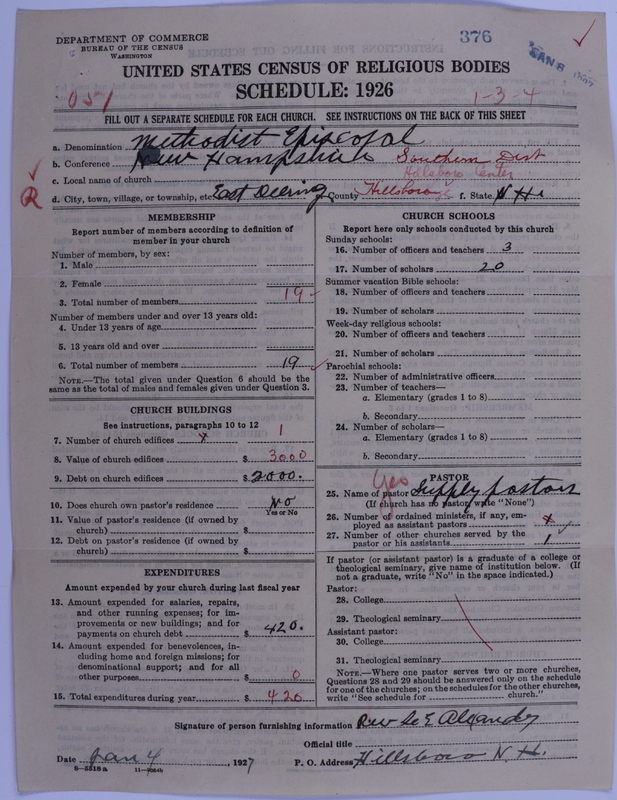 DEPARTMENT OF COMMERCE
BUREAU OF THE CENSUS
WASHINGTON
376
JAN 8
UNITED STATES CENSUS OF RELIGIOUS BODIES
SCHEDULE: 1926
051
1-3-4
FILL OUT A SEPARATE SCHEDULE FOR EACH CHURCH. SEE INSTRUCTIONS ON THE BACK OF THIS SHEET
a. Denomination Methodist Episcopal
b. Conference New Hampshire Southern Dist
c. Local name of church Hillsboro Center
R
d. City, town, village, or township, etc. East Deering e. County Hillsborough f. State N H.
MEMBERSHIP
Report number of members according to definition of
member in your church
Number of members, by sex:
1. Male
2. Female
3. Total number of members 19
Number of members under and over 13 years old:
4. Under 13 years of age
5. 13 years old and over
6. Total number of members 19
NOTE.—The total given under Question 6 should be the
same as the total of males and females given under Question 3.
CHURCH BUILDINGS
See instructions, paragraphs 10 to 12
7. Number of church edifices x 1
8. Value of church edifices $ 3000
9. Debt on church edifices $ 2000.
10. Does church own pastor's residence No
Yes or No
11. Value of pastor's residence (if owned by
church) $
12. Debt on pastor's residence (if owned by
church) $
EXPENDITURES
Amount expended by your church during last fiscal year
13. Amount expended for salaries, repairs,
and other running expenses; for im-
provements or new buildings; and for
payments on church debt $ 420.
14. Amount expended for benevolences, in-
cluding home and foreign missions; for
denominational support; and for all
other purposes $ 0
15. Total expenditures during year $ 420
CHURCH SCHOOLS
Report here only schools conducted by this church
Sunday schools:
16. Number of officers and teachers 3
17. Number of scholars 20
Summer vacation Bible schools:
18. Number of officers and teachers
19. Number of scholars
Week-day religious schools:
20. Number of officers and teachers
21. Number of scholars
Parochial schools:
22. Number of administrative officers
23. Number of teachers—
a. Elementary (grades 1 to 8)
b. Secondary
24. Number of scholars—
a. Elementary (grades 1 to 8)
b. Secondary
PASTOR
yes
25. Name of pastor Supply pastor
(If church has no pastor, write "None")
26. Number of ordained ministers, if any, em-
ployed as assistant pastors x
27. Number of other churches served by the
pastor or his assistants 1
If pastor (or assistant pastor) is a graduate of a college or
theological seminary, give name of institution below. (If
not a graduate, write "No" in the space indicated.)
Pastor:
28. College
29. Theological seminary
Assistant pastor:
30. College
31. Theological seminary
NOTE.—Where one pastor serves two or more churches,
Questions 28 and 29 should be answered only on the schedule
for one of the churches; on the schedules for the other churches,
write "See schedule for church."
Signature of person furnishing information Rev E Alexander
Official title
Date Jan 4, 1927 P. O. Address Hillsboro N. H.
8-5518 a